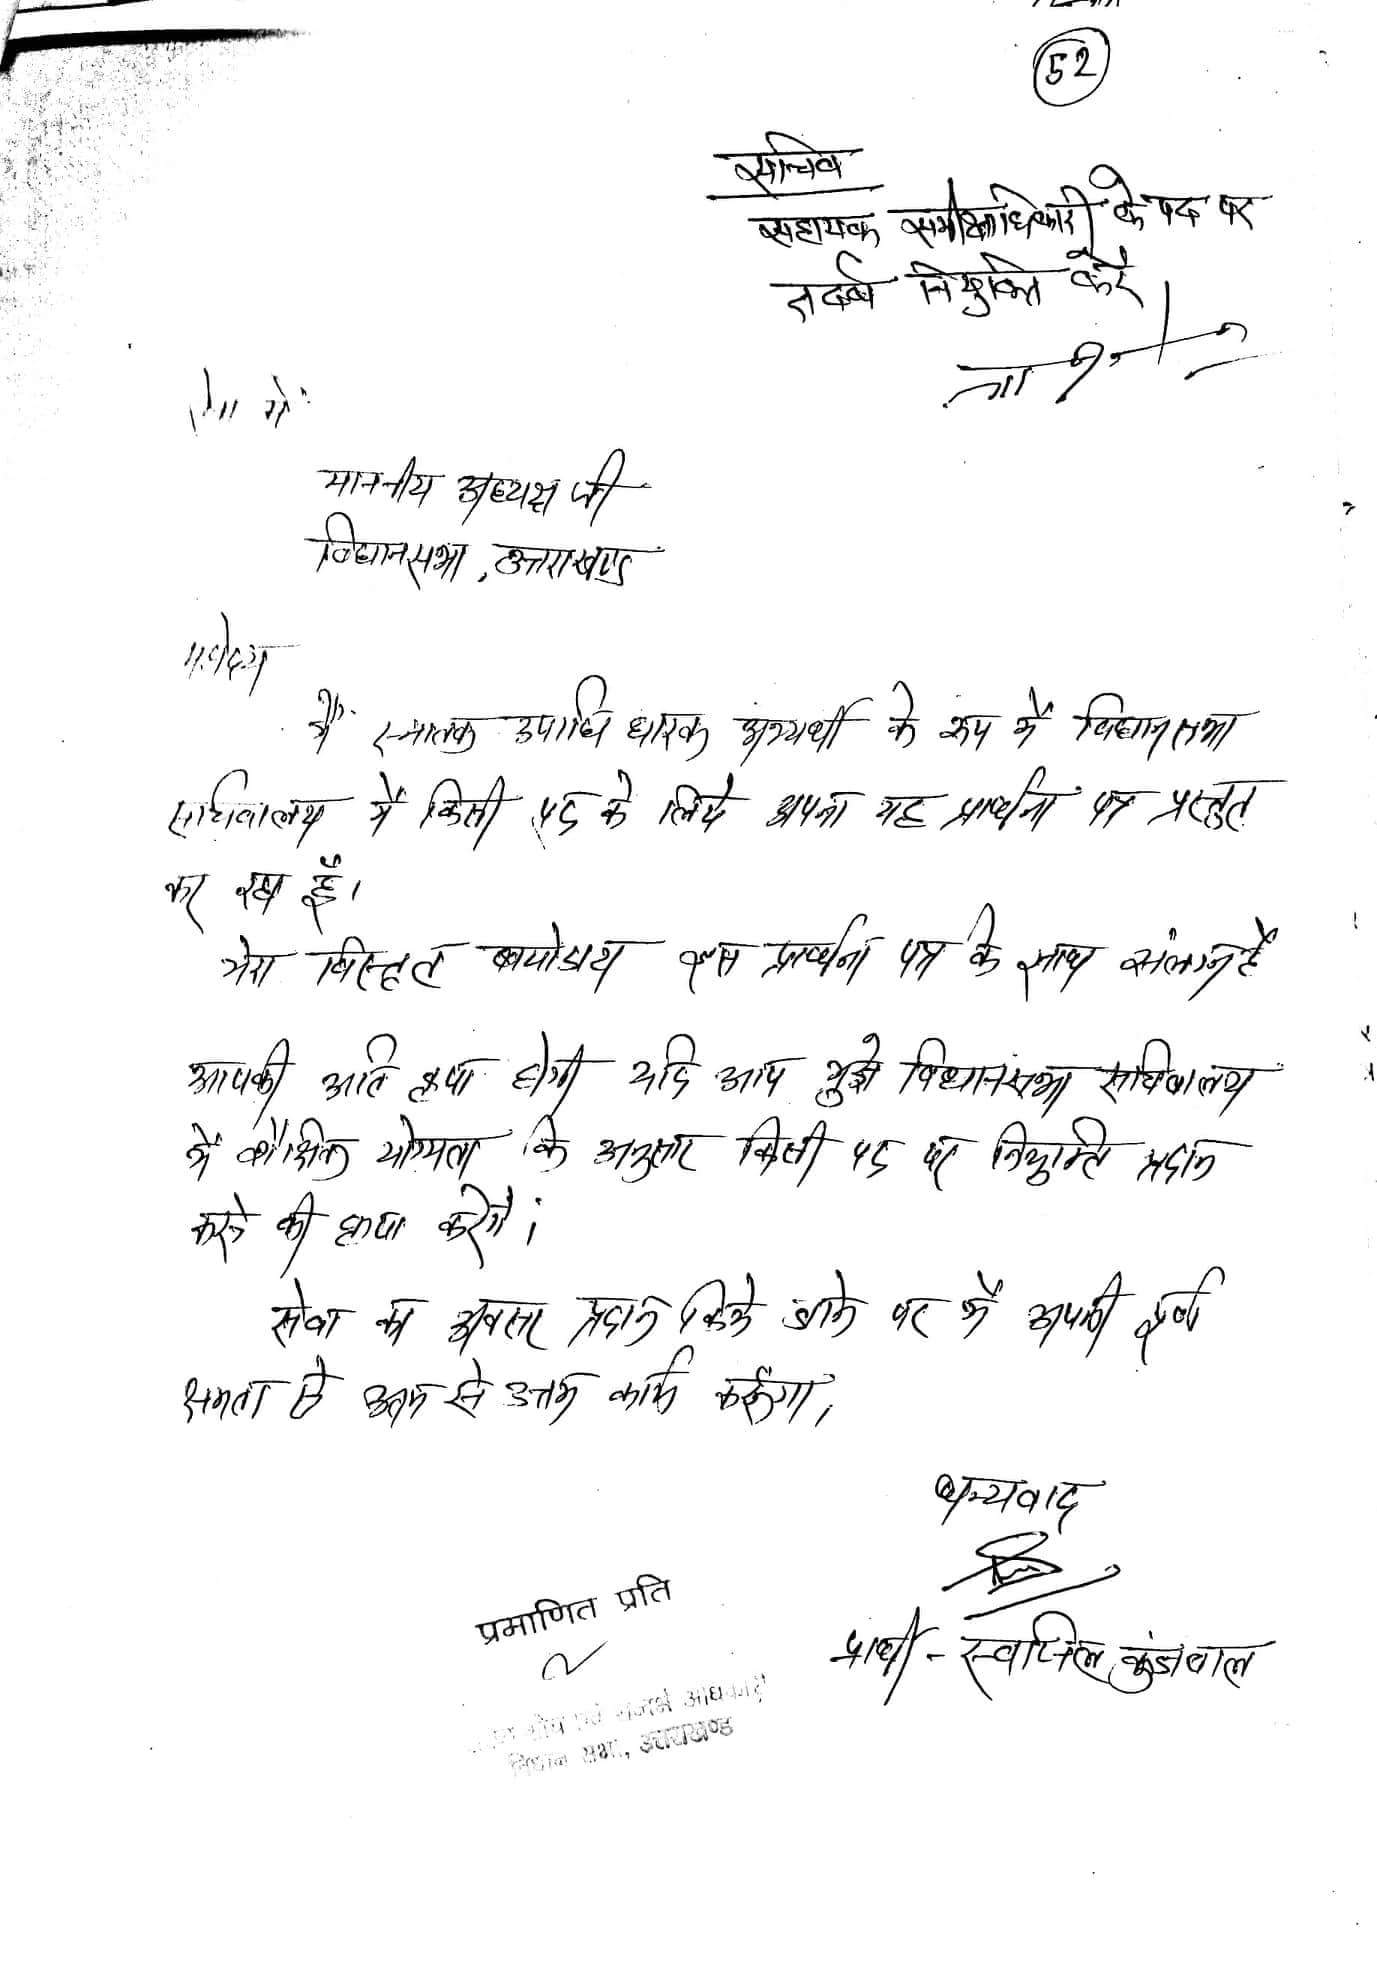 52
सचिव
सहायक समीक्षाधिकारी के पद पर
तदर्थ नियुक्ति करें
सेवा में
माननीय अध्यक्ष जी
विधानसभा, उत्तराखण्ड
महोदय
मैं स्नातक उपाधि धारक अभ्यर्थी के रूप में विधानसभा
सचिवालय में किसी पद के लिये अपना यह प्रार्थना पत्र प्रस्तुत
कर रहा हूँ।
मेरा विस्तृत बायोडाटा इस प्रार्थना पत्र के साथ संलग्न है
आपकी अति कृपा होगी यदि आप मुझे विधानसभा सचिवालय
में शैक्षिक योग्यता के अनुसार किसी पद पर नियुक्ति प्रदान
करने की कृपा करेंगे।
सेवा का अवसर प्रदान किये जाने पर मैं अपनी पूर्ण
क्षमता से उत्तम से उत्तम कार्य करूंगा।
धन्यवाद
प्रार्थी - स्वप्निल कुंडवाल
प्रमाणित प्रति
अधिकारी
विधान सभा, उत्तराखण्ड